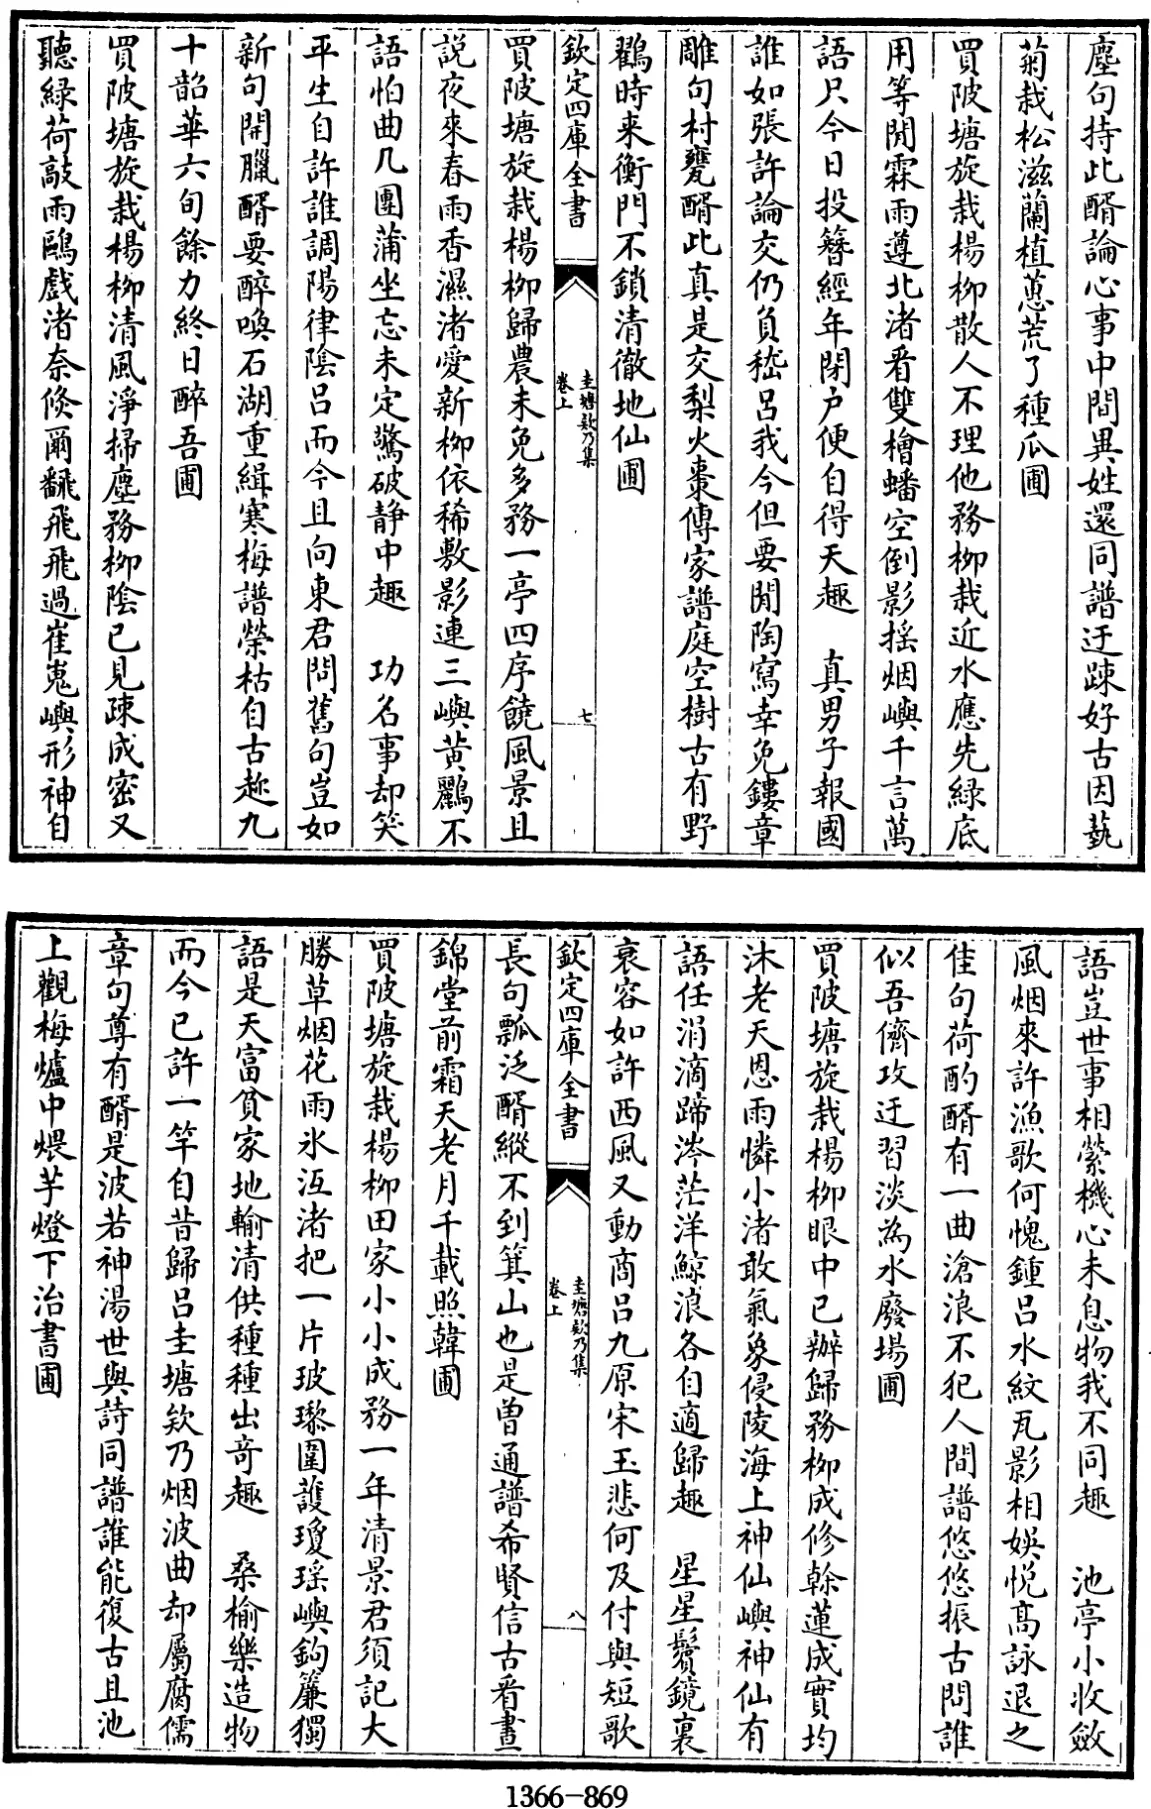 塵句持此醑論心事中間異姓還同譜迂疎好古因藝
菊栽松滋蘭植蕙荒了種瓜圃
買陂塘旋栽楊栁散人不理他務栁栽近水應先綠底
用等閒霖雨遵北渚看雙檜蟠空倒影揺烟嶼千言萬
語只今日投簪經年閉户便自得天趣　真男子報國
誰如張許論交仍負嵇吕我今但要閒陶寫幸免鏤章
雕句村甕醑此真是交梨火棗傳家譜庭空樹古有野
鸛時来衡門不鎖清徹地仙圃
欽定四庫全書
圭塘欸乃集
卷上
七
買陂塘旋栽楊栁歸農未免多務一亭四序饒風景且
説夜來春雨香濕渚愛新栁依稀敷影連三嶼黄鸝不
語怕曲几團蒲坐忘未定驚破静中趣　功名事却笑
平生自許誰調陽律陰吕而今且向東君問舊句豈如
新句開臘醑要醉喚石湖重緝寒梅譜榮枯自古趂九
十韶華六旬餘力終日醉吾圃
買陂塘旋栽楊栁清風淨掃塵務栁陰已見疎成密又
聽綠荷敲雨鷗戲渚奈倐爾飜飛飛過崔嵬嶼形神自
語豈世事相縈機心未息物我不同趣　池亭小收斂
風烟來許漁歌何愧鍾吕水紋瓦影相娱悦髙詠退之
佳句荷酌醑有一曲滄浪不犯人間譜悠悠振古問誰
似吾儕攻迂習淡為水廢場圃
買陂塘旋栽楊栁眼中已辦歸務栁成修榦蓮成實均
沐老天恩雨憐小渚敢氣象侵陵海上神仙嶼神仙有
語任涓滴蹄涔茫洋鯨浪各自適歸趣　星星鬢鏡裏
衰容如許西風又動商吕九原宋玉悲何及付與短歌
長句瓢泛醑縱不到箕山也是曽通譜希賢信古看晝
錦堂前霜天老月千載照韓圃
欽定四庫全書
圭塘欸乃集
卷上
八
買陂塘旋栽楊栁田家小小成務一年清景君須記大
勝草烟花雨氷沍渚把一片玻瓈圍護瓊瑶嶼鈎簾獨
語是天富貧家地輸清供種種出竒趣　桑榆樂造物
而今已許一竿自昔歸吕圭塘欸乃烟波曲却屬腐儒
章句尊有醑是波若神湯世與詩同譜誰能復古且池
上觀梅爐中煨芋燈下治書圃
1366-869